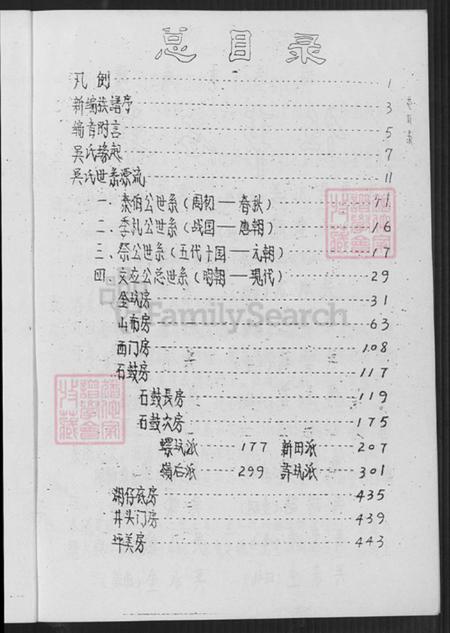 总目录
凡例 1
新编族谱序 3
编者附言 5
吴氏缘起 7
吴氏世系源流 11
一.泰伯公世系(周初——春秋) 11
二.季札公世系(战国——唐朝) 16
三.祭公世系(五代十国——元朝) 17
四.文应公总世系(明朝——现代) 29
奎坑房 31
山布房 63
西门房 108
石鼓房 117
石鼓長房 119
石鼓次房 175
螺坑派 177 新田派 207
嶺后派 299 坑派 301
湖仔底房 435
井头门房 439
坪美房 443
FamilySearch